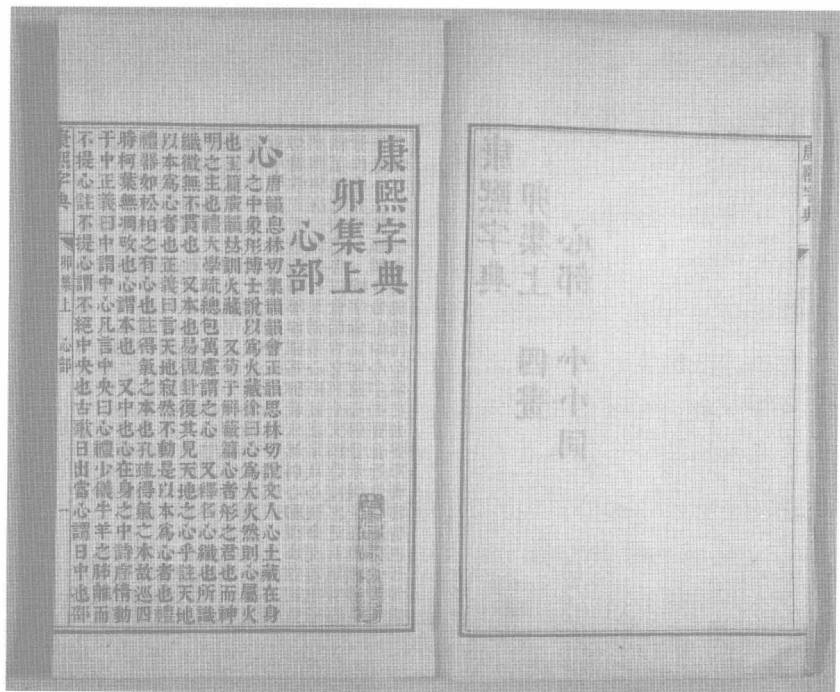 康熙字典
康熙字典
卯集上
心部
心 唐韻息林切集韻韻會正韻思林切說文人心土藏在身
之中象形博士說以爲火藏徐曰心爲大火然則心屬火
也玉篇廣韻𠀤訓火藏 又荀子解蔽篇心者形之君也而神
明之主也禮大學疏總包萬慮謂之心 又釋名心纖也所識
纖微無不貫也 又本也易復卦復其見天地之心乎註天地
以本爲心者也正義曰言天地寂然不動是以本爲心者也禮
禮器如松柏之有心也註得氣之本也孔疏得氣之本故巡四
時柯葉無凋改也心謂本也 又中也心在身之中詩序情動
于中正義曰中謂中心凡言中央曰心禮少儀牛羊之肺離而
不提心註不提心謂不絕中央也古歌日出當心謂日中也部
康熙字典 卯集上 心部 一